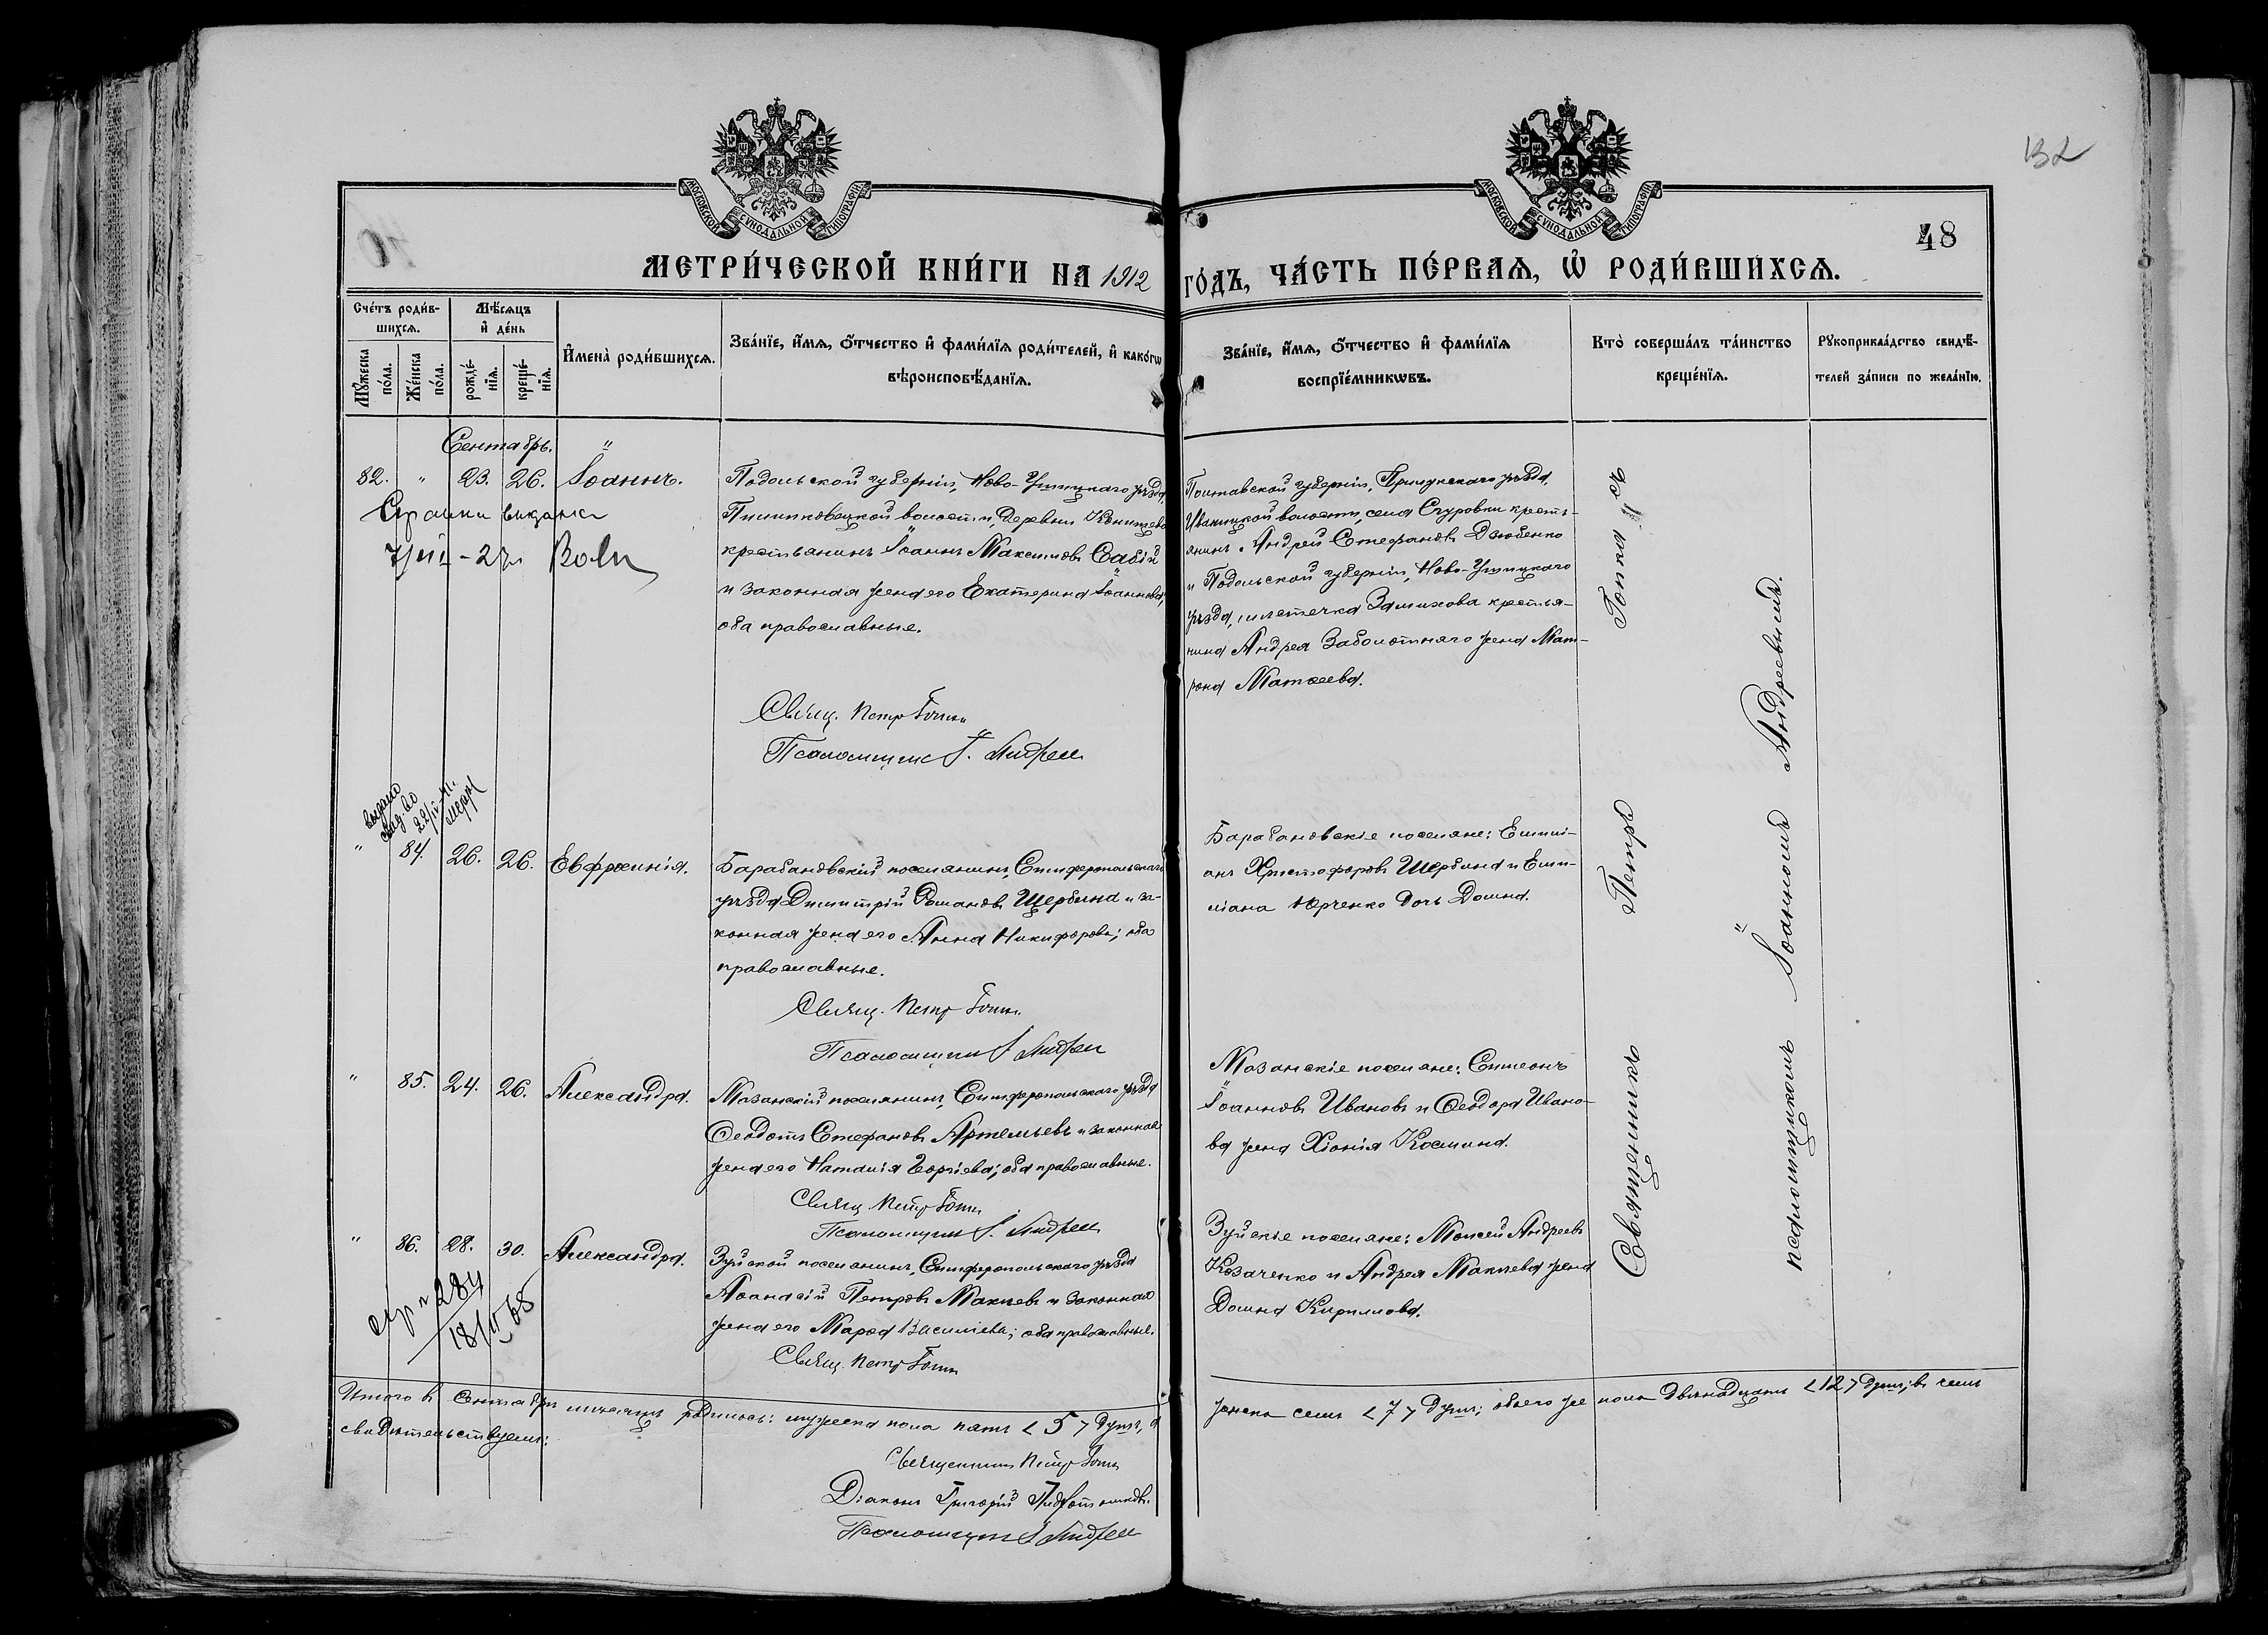 132
48
МОСКОВСКОЙ СѴНОДАЛЬНОЙ ТИПОГРАФІИ
МОСКОВСКОЙ СѴНОДАЛЬНОЙ ТИПОГРАФІИ
МЕТРИ́ЧЕСКОЙ КНИ́ГИ НА 1912 ГО́ДЪ, ЧА́СТЬ ПЕ́РВАѦ, Ѡ҆ РОДИ́ВШИХСѦ.
Сче́тъ роди́в-
шихсѧ.
Мꙋ́жеска по́ла.
Же́нска по́ла.
Мѣ́сѧцъ
и҆ де́нь
рожде́-
нїѧ.
креще́-
нїѧ.
И҆мена̀ роди́вшихсѧ.
Зва́нїе, и҆́мѧ, ѻ҆́тчество и҆ фами́лїѧ роди́телей, и҆ како́гѡ
вѣроисповѣ́данїѧ.
Зва́нїе, и҆́мѧ, ѻ҆́тчество и҆ фами́лїѧ
воспрїе́мникѡвъ.
Кто̀ соверша́лъ та́инство
креще́нїѧ.
Рꙋкоприкла́дство свидѣ́-
телей за́писи по жела́нїю.
Сентябрь.
82. " 23. 26. Іоаннъ.
Подольской губерніи, Ново-Ушицкаго уѣзда,
волости, деревни
крестьянинъ Іоаннъ Максимовъ Сабій
и законная жена его Екатерина Іоаннова,
оба православные.
Свящ. Петръ
Псаломщикъ І. Андрее
Полтавской губерніи, Прилукскаго уѣзда,
Иваницкой волости, села Сгуровки кресть-
янинъ Андрей Стефановъ Дзюбенко
и Подольской губерніи, Ново-Ушицкаго
уѣзда, мѣстечка Замихова крестья-
нина Андрея Заболотняго жена Мат-
рона Матѳеева.
выдано
свид-во
22/IV-41.
" 84. 26. 26. Евфросинія.
Барабановскій поселянинъ, Симферопольскаго
уѣзда Димитрій Романовъ Щербина и за-
конная жена его Анна Никифорова; оба
православные.
Свящ. Петръ
Псаломщикъ І. Андрее
Барабановскіе поселяне: Емили-
анъ Христофоровъ Щербина и Еми-
ліана Юрченко дочь Домна.
" 85. 24. 26. Александра.
Мазанскій поселянинъ, Симферопольскаго уѣзда
Ѳеодотъ Стефановъ Артемьевъ и законная
жена его Наталія Георгіева; оба православные.
Свящ Петръ
Псаломщикъ І. Андрее
Мазанскіе поселяне: Симеонъ
Іоанновъ Ивановъ и Ѳеодора Ивано-
ва жена Хіонія Космина.
" 86. 28. 30. Александра.
284
18/II 65
Зуйской поселянинъ, Симферопольскаго уѣзда
Аѳанасій Петровъ Макѣевъ и законная
жена его Марѳа Василіева; оба православные.
Свящ. Петръ
Зуйскіе поселяне: Моисей Андреевъ
Козаченко и Андрея Макѣева жена
Домна Кириллова.
Священникъ Петръ
псаломщикомъ Іоанномъ Андреевымъ.
Итого въ Сентябрѣ мѣсяцѣ родилось: мужеска пола пять <5> душъ, а
женска семь <7> душъ; обоего же пола двѣнадцать <12> душъ; въ чемъ
свидѣтельствуемъ:
Священникъ Петръ
Діаконъ Григорій
Псаломщикъ І Андрее